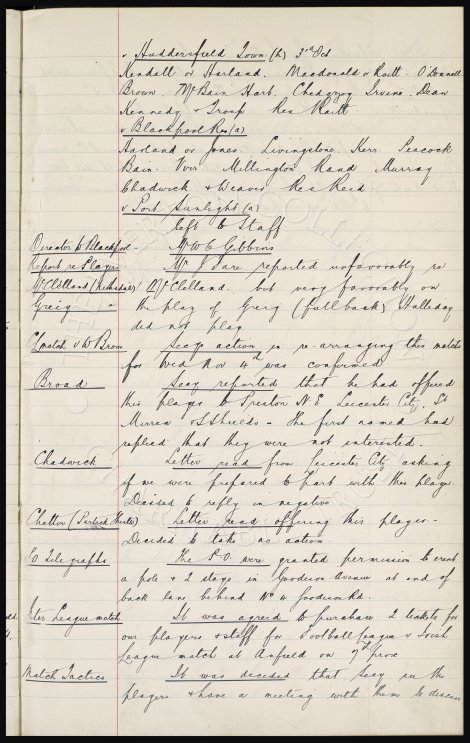 v Huddersfield Town (h) 3rd Oct
Kendall or Harland. Macdonald v Raitt. O'Donnell
Brown. McBain Hart. Chedgzoy Irvine. Dean
Kennedy & Troup Res Raitt
v Blackpool Res (a)
Harland or Jones. Livingstone. Kerr. Peacock
Bain. Virr. Millington Rand Murray
Chadwick & Weaver Res Reid.
v Port Sunlight (a)
left to Staff
Director to Blackpool - Mr W C Gibbins
Report re Players Mr J Sare reported unfavorably re
McClelland (Kirkcaldy) McClelland. but very favorably on
Greig - the play of Greig (full back) Halliday
did not play
CL match v W Brom Secys action in re-arranging this match
for Wed Nov 4th was confirmed
Broad Secy reported that he had offered
this player to Preston N E Leicester City. St
Mirren & S Shields - The first named had
replied that they were not interested.
Chadwick Letter read from Leicester City asking
if we were prepared to part with this player
Decided to reply in negative
Chatton (Partick Thistle) Letter read offering this player -
Decided to take no action.
P.O Telegraphs The P.O. were granted permission to erect
a pole & 2 stays in Goodison Avenue at end of
back lane behind No 4 Goodison Rd.
Inter League match It was agreed to purchase 2 tickets for
our players & staff for Football League v Irish
League match at Anfield on 7th prox
Match Tactics It was decided that Secy see the
players & have a meeting with them to discuss